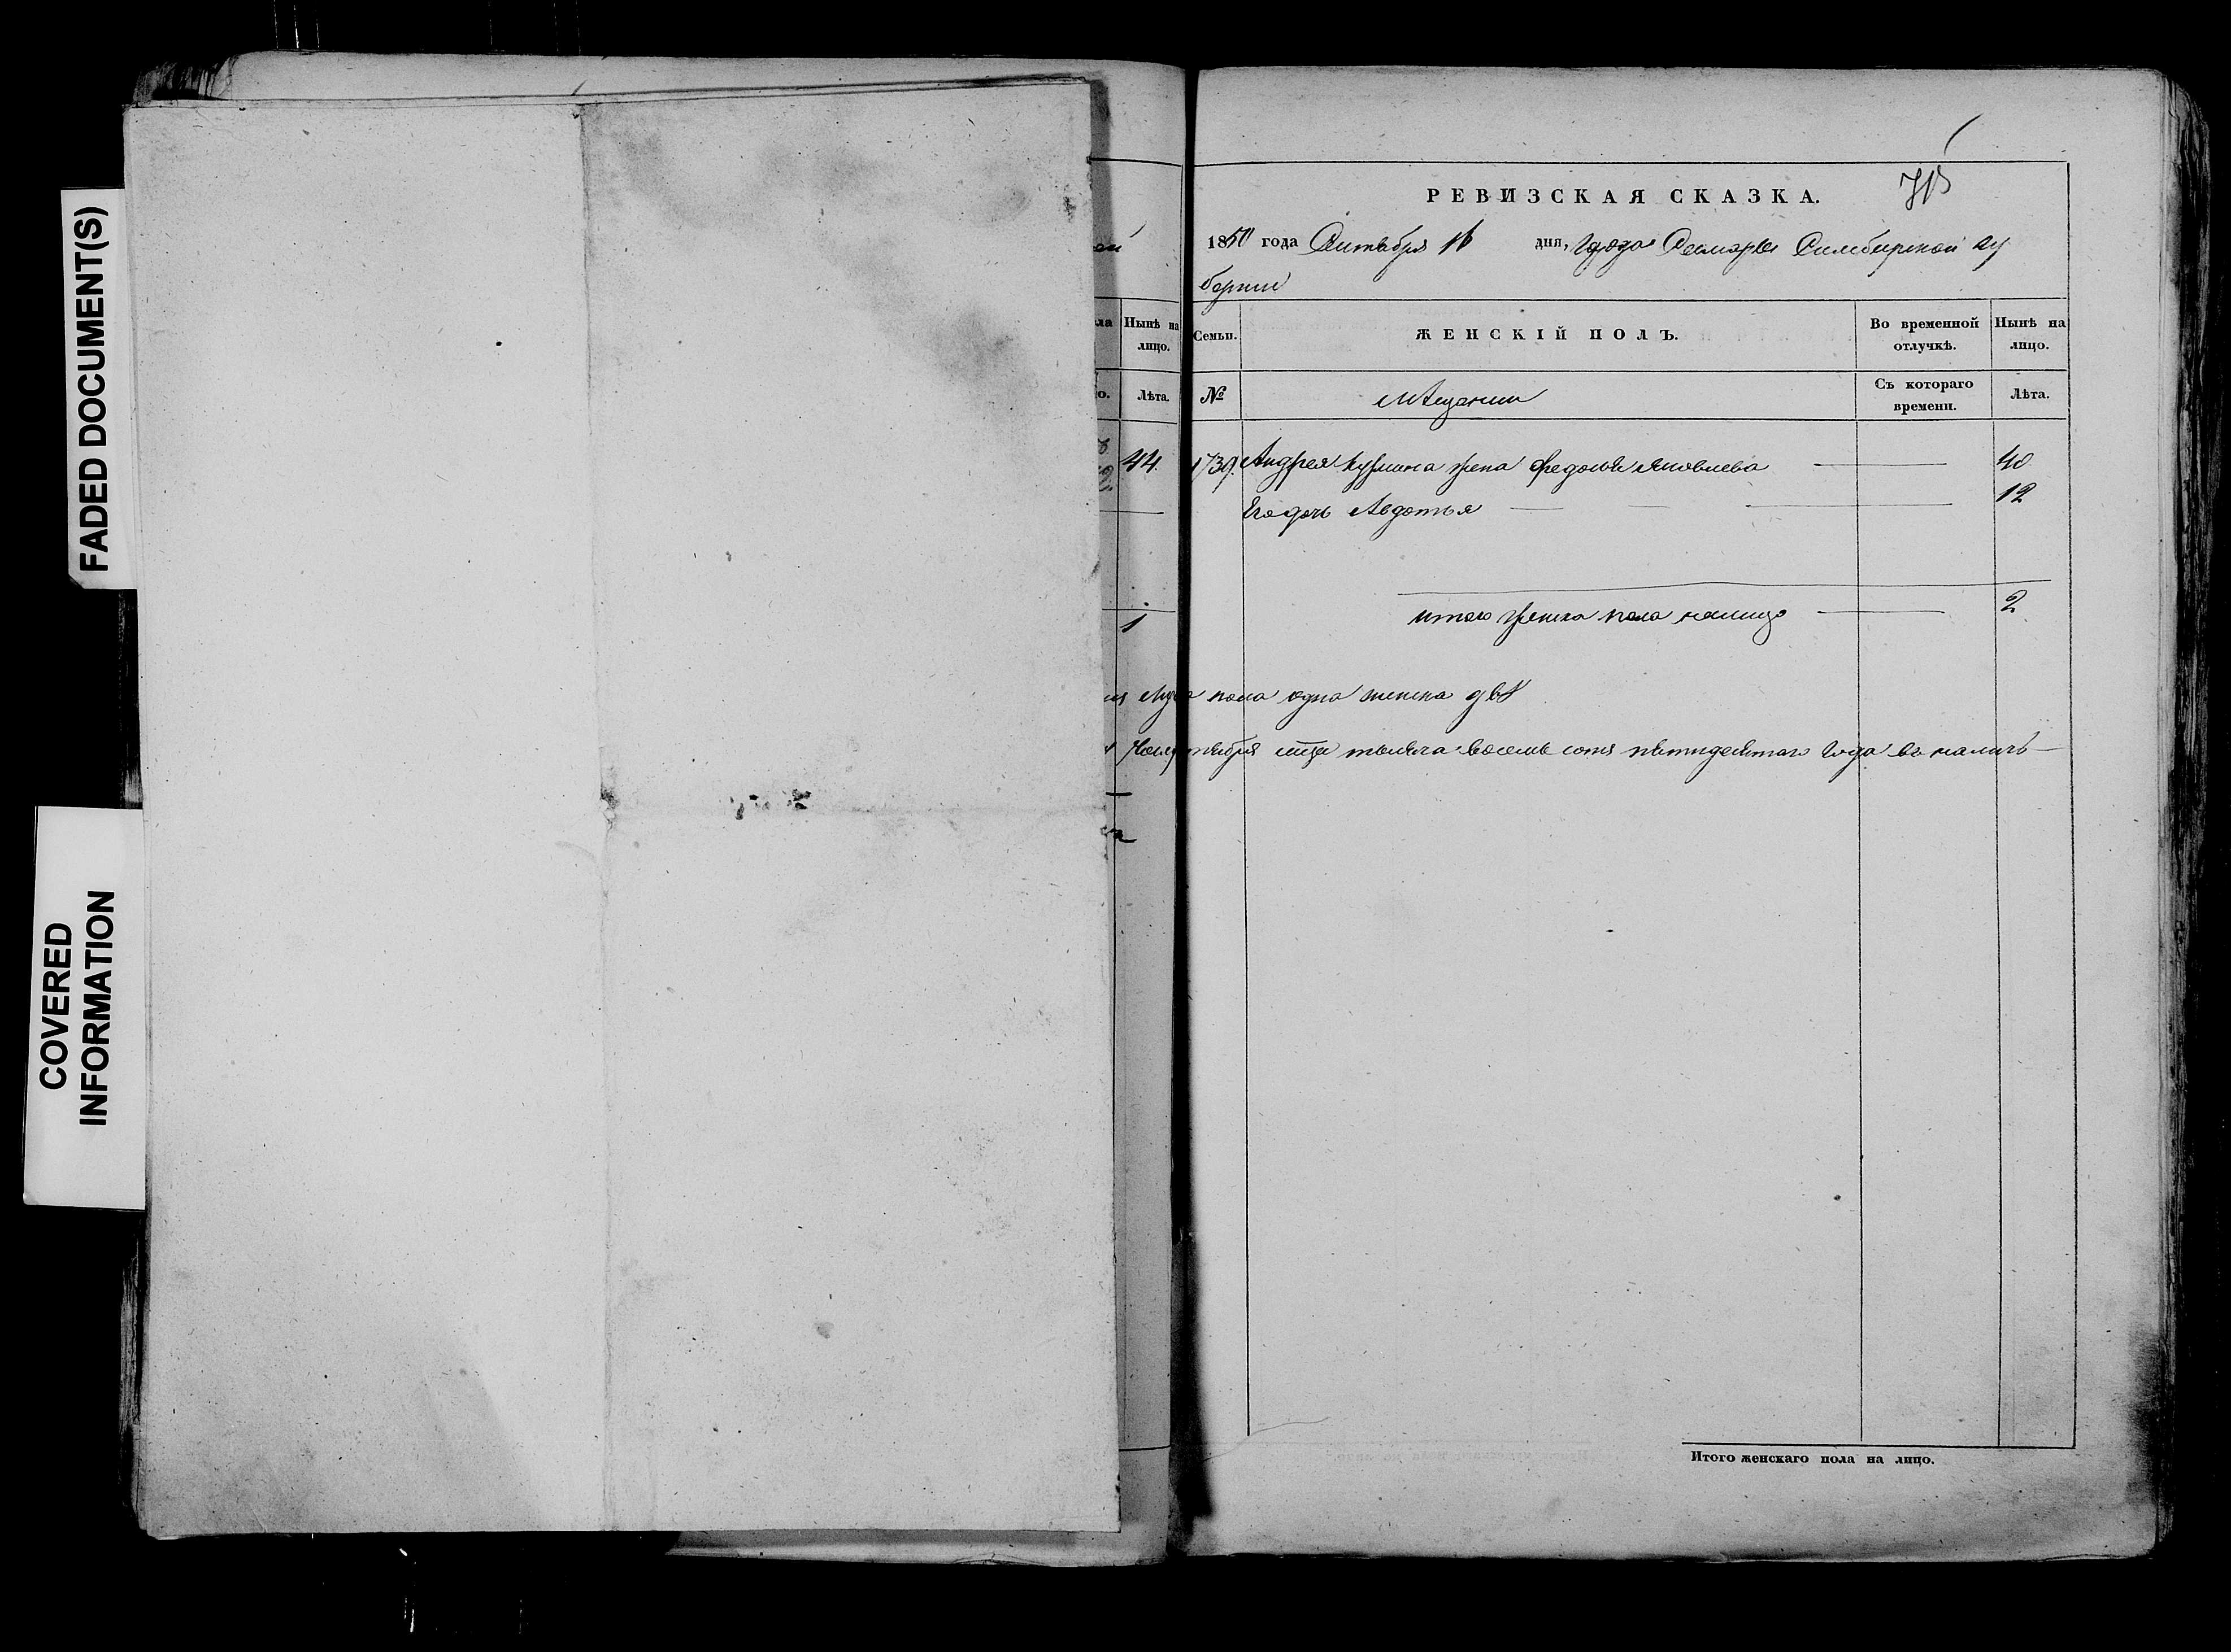 FADED DOCUMENT(S)
COVERED
INFORMATION
РЕВИЗСКАЯ СКАЗКА.
1850 года Октября 16 дня, города Самары Симбирской гу
бернии
Нынѣ на
лицо.
Лѣта.
44.
1
Семьи.
№
ЖЕНСКІЙ ПОЛЪ.
Во временной
отлучкѣ.
Нынѣ на
лицо.
Мѣщанин
Съ котораго
времени.
Лѣта.
1739. Андрея Кузмина жена Федосья Яковлева 40
Его дочь Авдотья 12
итого женска пола налицо 2
пола одна женска двѣ
тысяча восемь сотъ пятидесятаго года во
Итого женскаго пола на лицо.